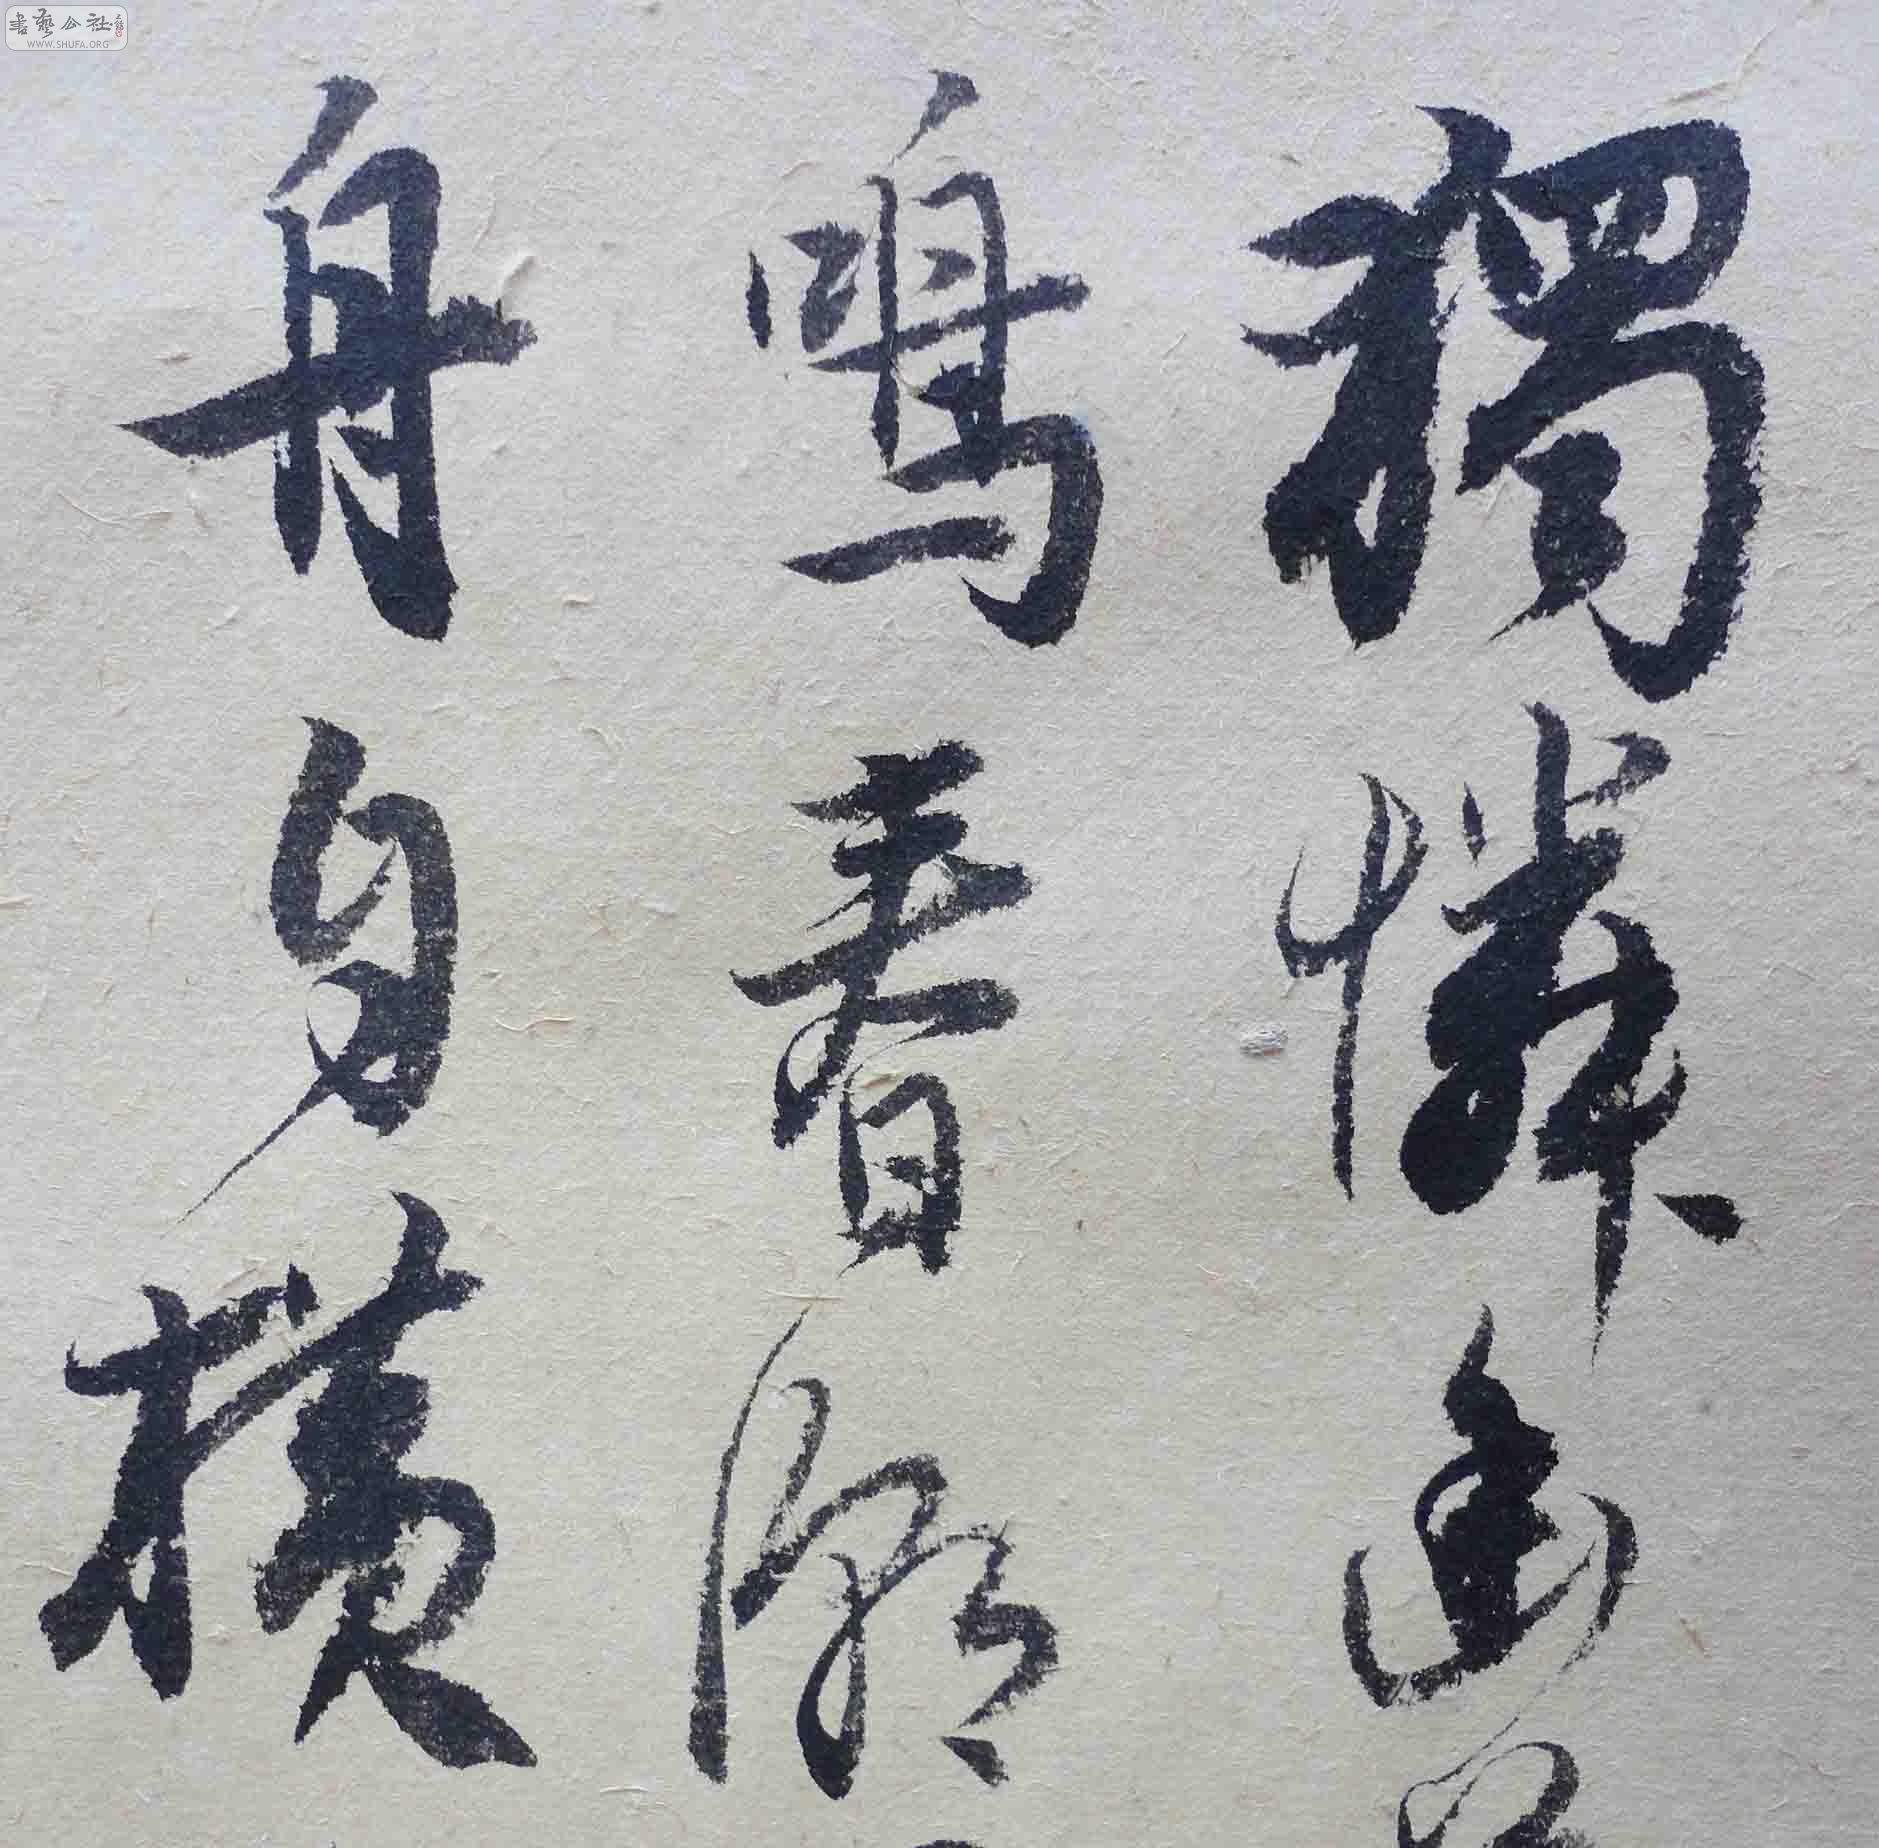 獨憐幽
鳴春潮
舟自橫
書藝公社
WWW.SHUFA.ORG